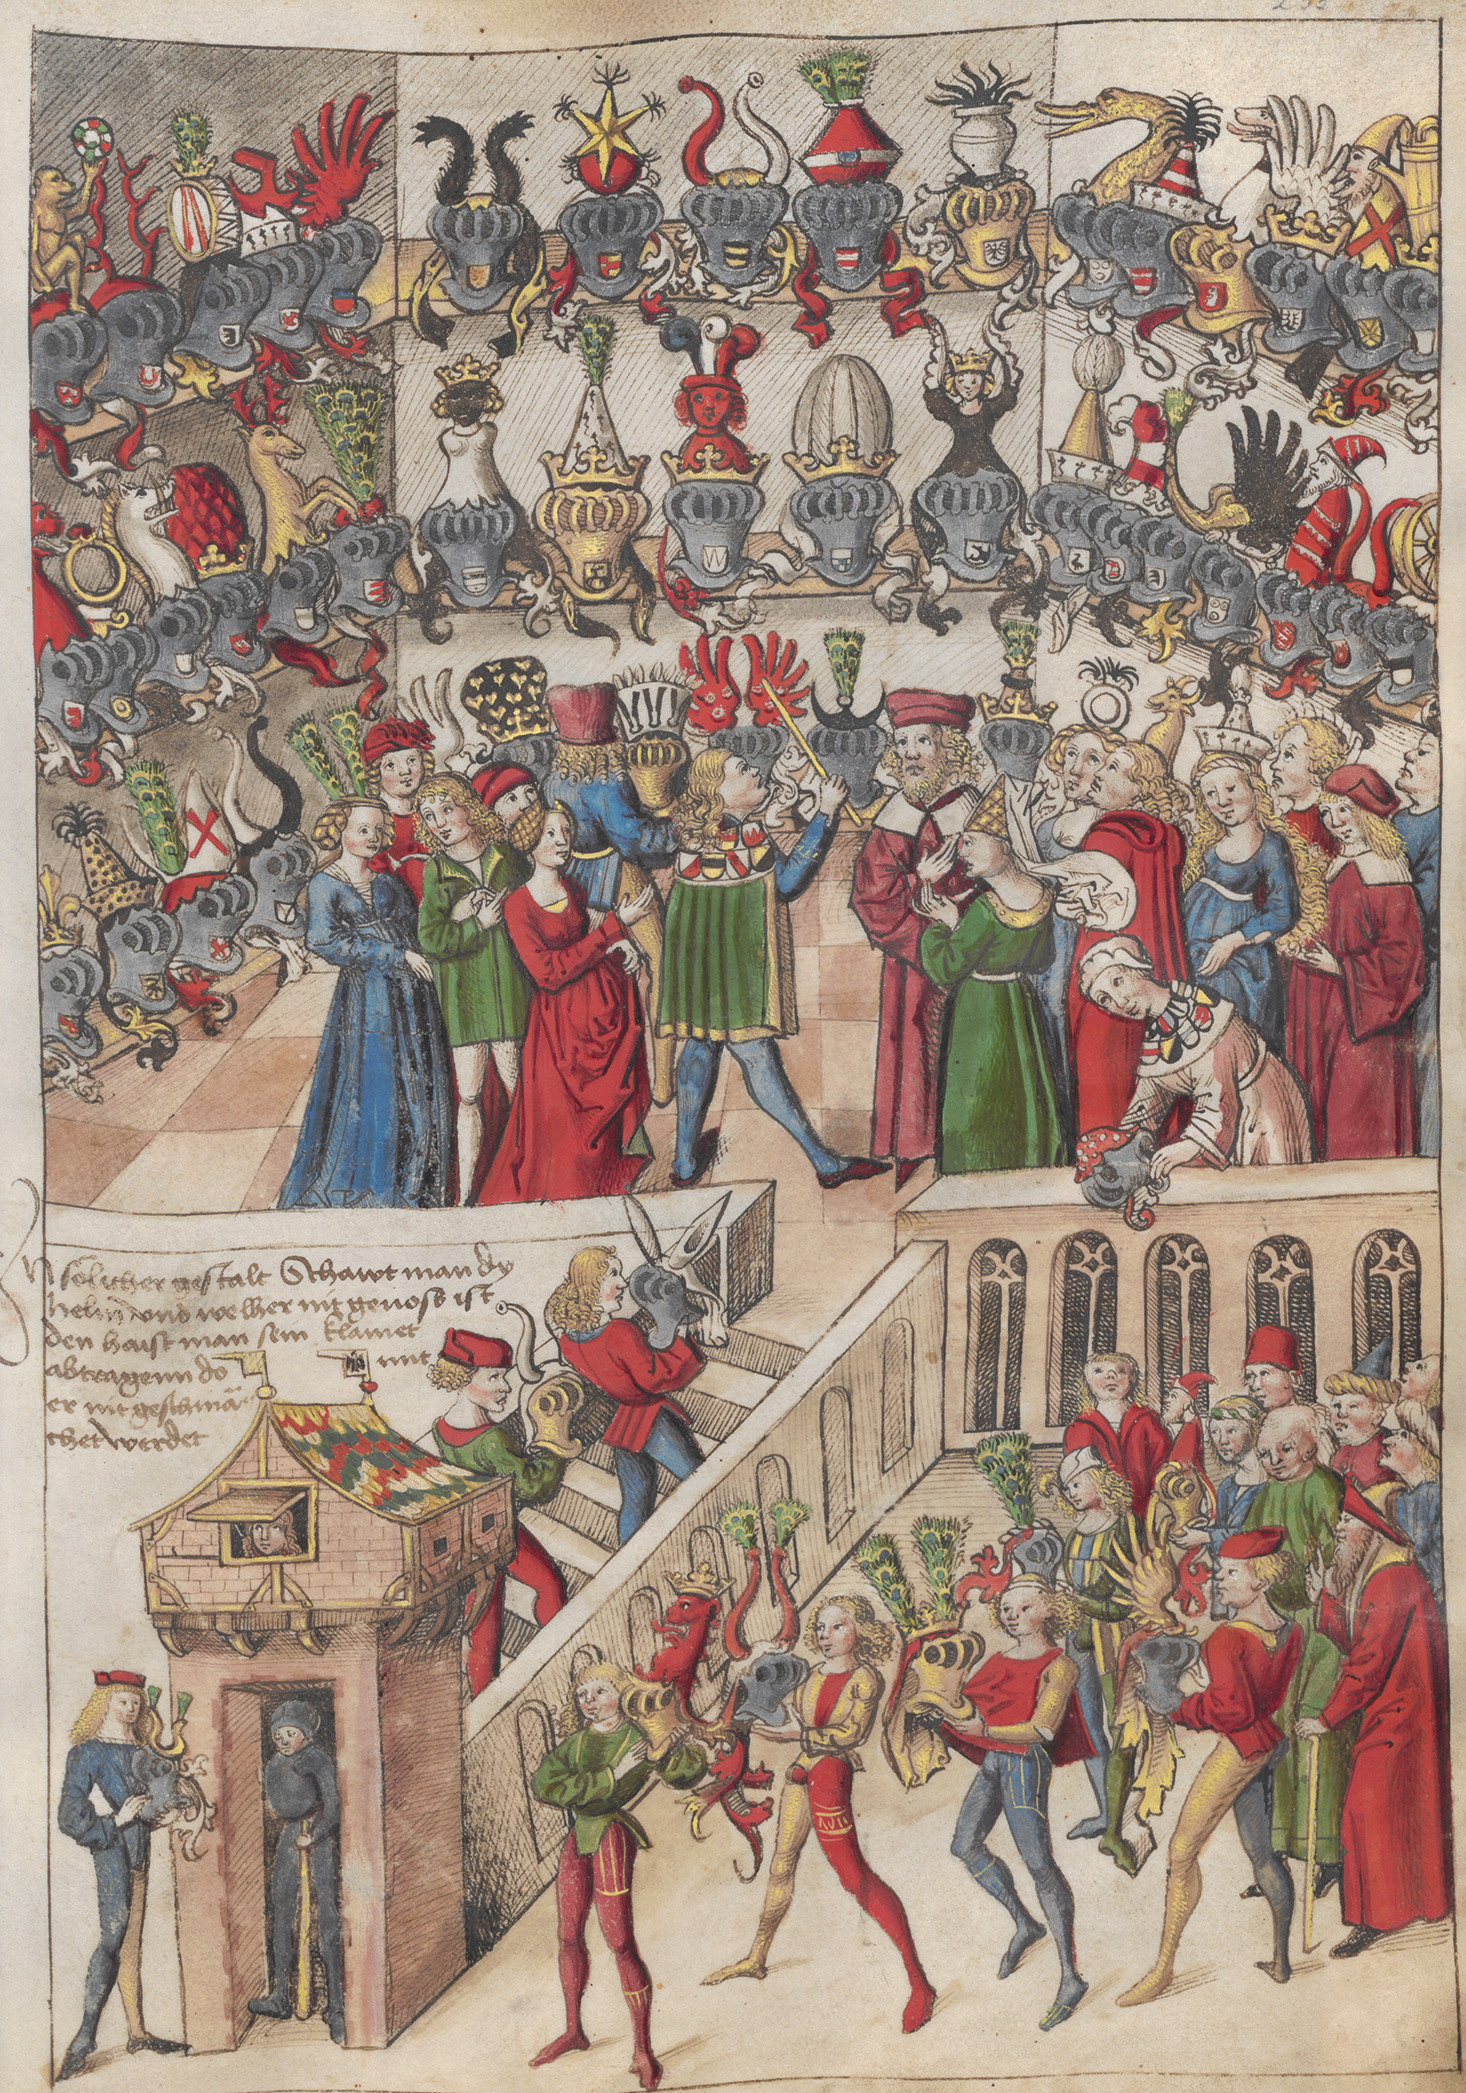 In solicher gestalt Schawt man dy
helm und welher nit genoss ist
den haist man sein klainet
abtragenn do mit
er nit geschmä
chet werdet